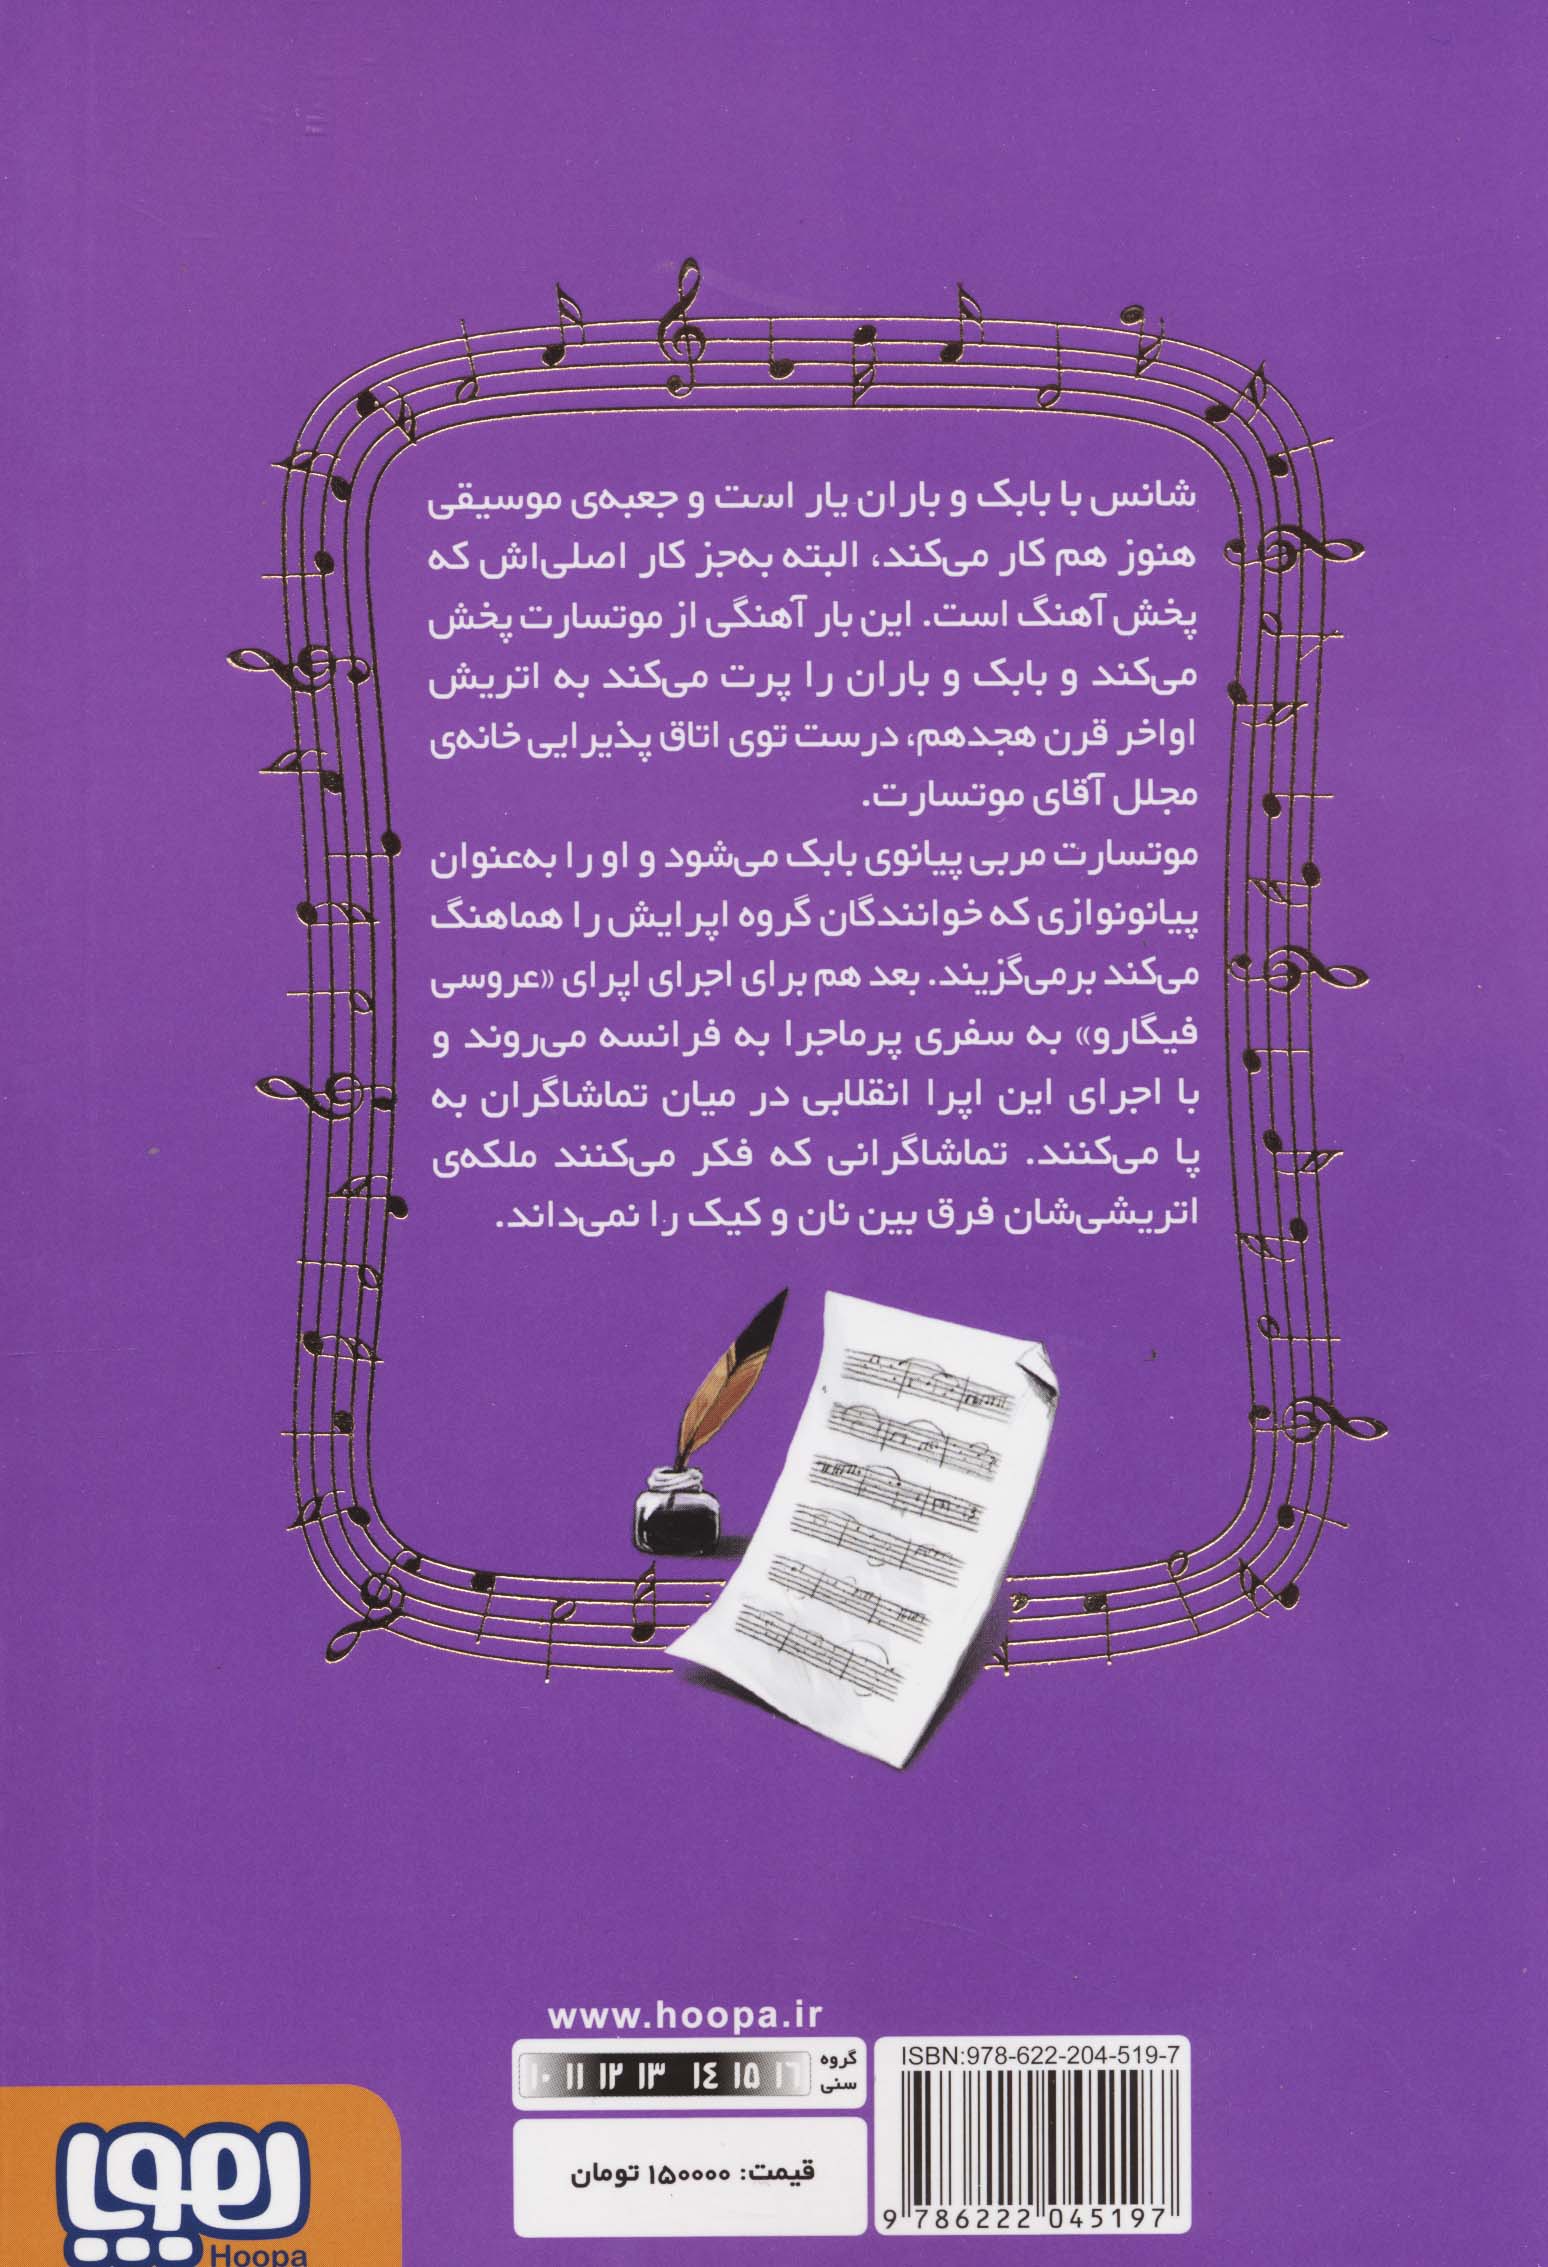 شانس با بابک و باران یار است و جعبه‌ی موسیقی
هنوز هم کار می‌کند، البته به‌جز کار اصلی‌اش که
پخش آهنگ است. این بار آهنگی از موتسارت پخش
می‌کند و بابک و باران را پرت می‌کند به اتریش
اواخر قرن هجدهم، درست توی اتاق پذیرایی خانه‌ی
مجلل آقای موتسارت.
موتسارت مربی پیانوی بابک می‌شود و او را به‌عنوان
پیانونوازی که خوانندگان گروه اپرایش را هماهنگ
می‌کند برمی‌گزیند. بعد هم برای اجرای اپرای «عروسی
فیگارو» به سفری پرماجرا به فرانسه می‌روند و
با اجرای این اپرا انقلابی در میان تماشاگران به
پا می‌کنند. تماشاگرانی که فکر می‌کنند ملکه‌ی
اتریشی‌شان فرق بین نان و کیک را نمی‌داند.
www.hoopa.ir
گروه سنی
۱۰ ۱۱ ۱۲ ۱۳ ۱۴ ۱۵ ۱۶
قیمت: ۱۵۰۰۰۰ تومان
ISBN:978-622-204-519-7
9 786222 045197
هوپا
Hoopa